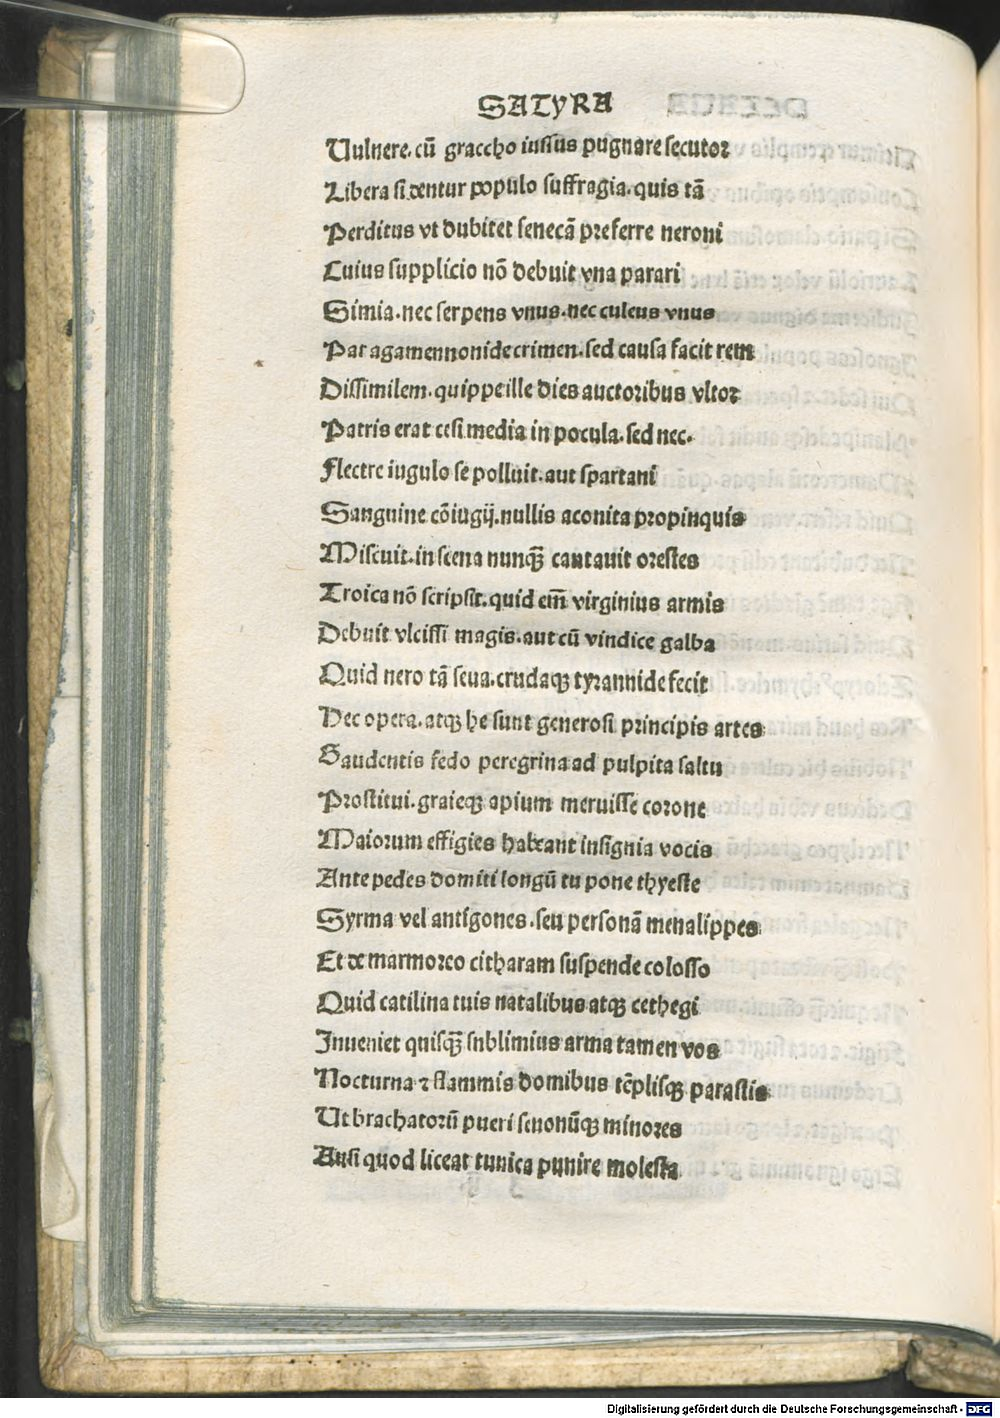 SATYRA
Uulnere. cū graccho iussus pugnare secutor
Libera si dentur populo suffragia. quis tā
Perditus vt dubitet senecā preferre neroni
Cuius supplicio nō debuit vna parari
Simia. nec serpens vnus. nec culeus vnus
Par agamennonide crimen. sed causa facit rem
Dissimilem. quippe ille dies auctoribus vltor
Patris erat cesi media in pocula. sed nec.
Flectre iugulo se polluit. aut spartani
Sanguine cōiugij. nullis aconita propinquis
Miscuit. in scena nunqȝ̄ cantauit orestes
Troica nō scripsit. quid em̄ virginius armis
Debuit vlcissi magis. aut cū vindice galba
Quid nero tā seua. crudaqȝ tyrannide fecit
Hec opera. atqȝ he sunt generosi principis artes
Gaudentis fedo peregrina ad pulpita saltu
Prostitui. graieqȝ apium meruisse corone
Maiorum effigies habeant insignia vocis
Ante pedes domiti longū tu pone thyeste
Syrma vel antigones. seu personā menalippes
Et de marmoreo citharam suspende colosso
Quid catilina tuis natalibus atqȝ cethegi
Inueniet quisqȝ̄ snblimius arma tamen vos
Nocturna ⁊ flammis domibus tēplisqȝ parastis
Ut brachatorū pueri senonūqȝ minores
Ausi quod liceat tunica punire molesta
Digitalisierung gefördert durch die Deutsche Forschungsgemeinschaft - DFG